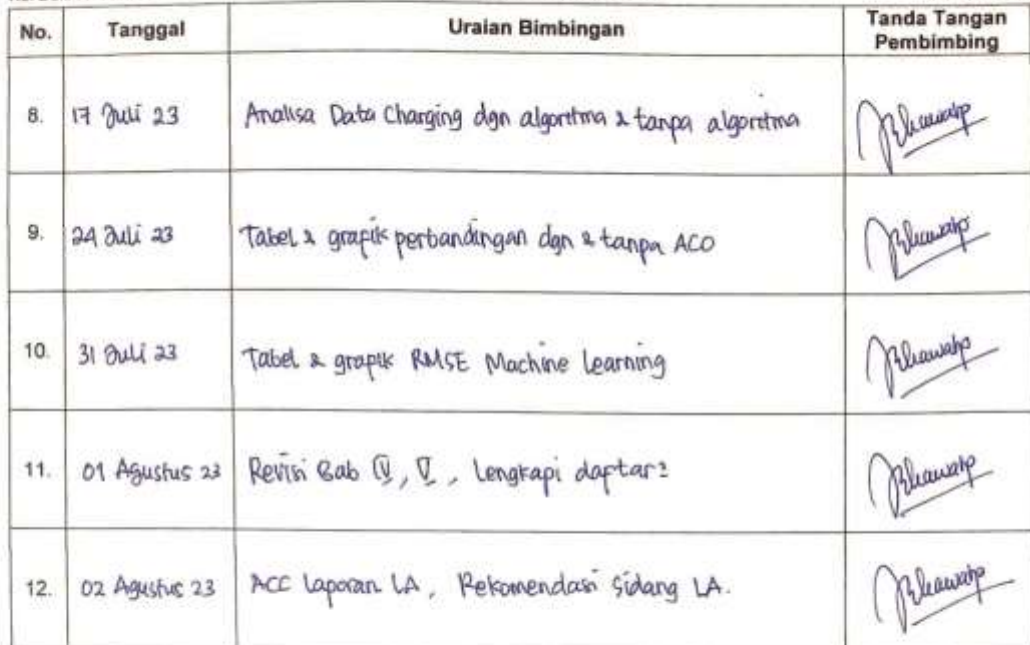 No. Tanggal Uraian Bimbingan Tanda Tangan Pembimbing
8. 17 Juli 23 Analisa Data Charging dgn algoritma & tanpa algoritma
9. 24 Juli 23 Tabel & grafik perbandingan dgn & tanpa ACO
10. 31 Juli 23 Tabel & grafik RMSE Machine Learning
11. 01 Agustus 23 Revisi Bab IV, V, Lengkapi daftar2
12. 02 Agustus 23 ACC Laporan LA, Rekomendasi Sidang LA.